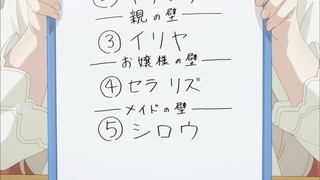 親の壁
③ イリヤ
お嬢様の壁
④ セラ リズ
メイドの壁
⑤ シロウ